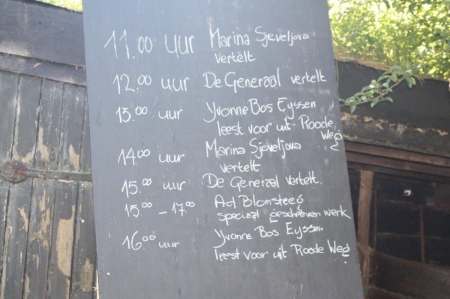 11.00 uur Marina Sjeveljova
vertelt
12.00 uur De Generaal vertelt
13.00 uur Yvonne Bos Eyssen
leest voor uit Roode
Weg
14.00 uur Marina Sjeveljova
vertelt
15.00 uur De Generaal vertelt.
15.00 - 17.00 Ad Blomsteeg
speciaal geschreven werk
16.00 uur Yvonne Bos Eyssen
leest voor uit Roode Weg